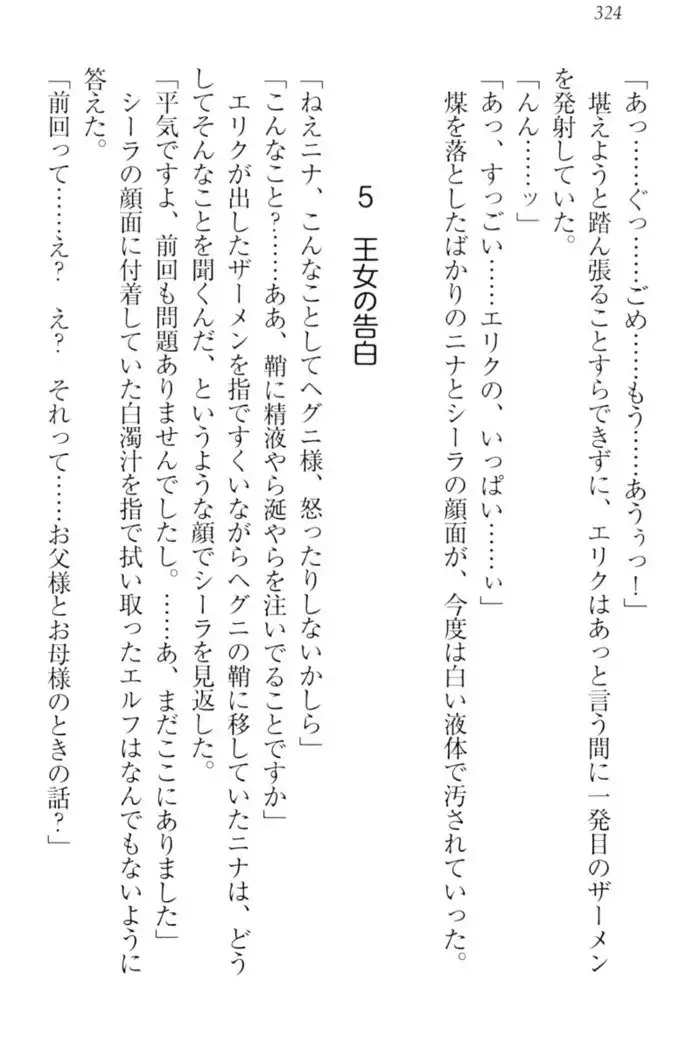 324
「あっ……ぐっ……ごめ……もう……あうぅっ！」
堪えようと踏ん張ることすらできずに、エリクはあっと言う間に一発目のザーメン
を発射していた。
「んん……ッ」
「あっ、すっごい……エリクの、いっぱい……ぃ」
煤を落としたばかりのニナとシーラの顔面が、今度は白い液体で汚されていった。
5　王女の告白
「ねえニナ、こんなことしてヘグニ様、怒ったりしないかしら」
「こんなこと？……ああ、鞘に精液やら涎やらを注いでることですか」
エリクが出したザーメンを指ですくいながらヘグニの鞘に移していたニナは、どう
してそんなことを聞くんだ、というような顔でシーラを見返した。
「平気ですよ、前回も問題ありませんでしたし。……あ、まだここにありました」
シーラの顔面に付着していた白濁汁を指で拭い取ったエルフはなんでもないように
答えた。
「前回って……え？　え？　それって……お父様とお母様のときの話？」